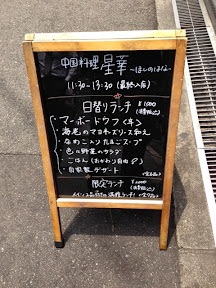 中国料理 星華
～ほしのはな～
11:30-13:30(最終入店)
日替りランチ ¥1000
・マーボードウフ(辛)
・海老のマヨネーズソース和え
・なめこ入りたまごスープ
・色々野菜のサラダ
・ごはん(おかわり自由)
・自家製デザート
限定ランチ ¥2000